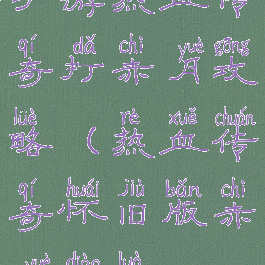 qí dǎ chì yuè gōng
奇 打 赤 月 攻
lüè rè xuě chuán
略 ( 热 血 传
qí huái jiù bǎn chì
奇 怀 旧 版 赤